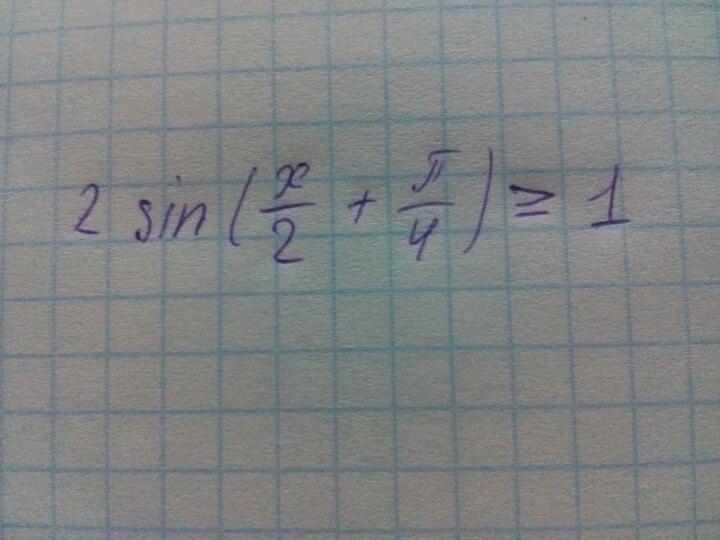 2 sin(x/2 + π/4) ≥ 1